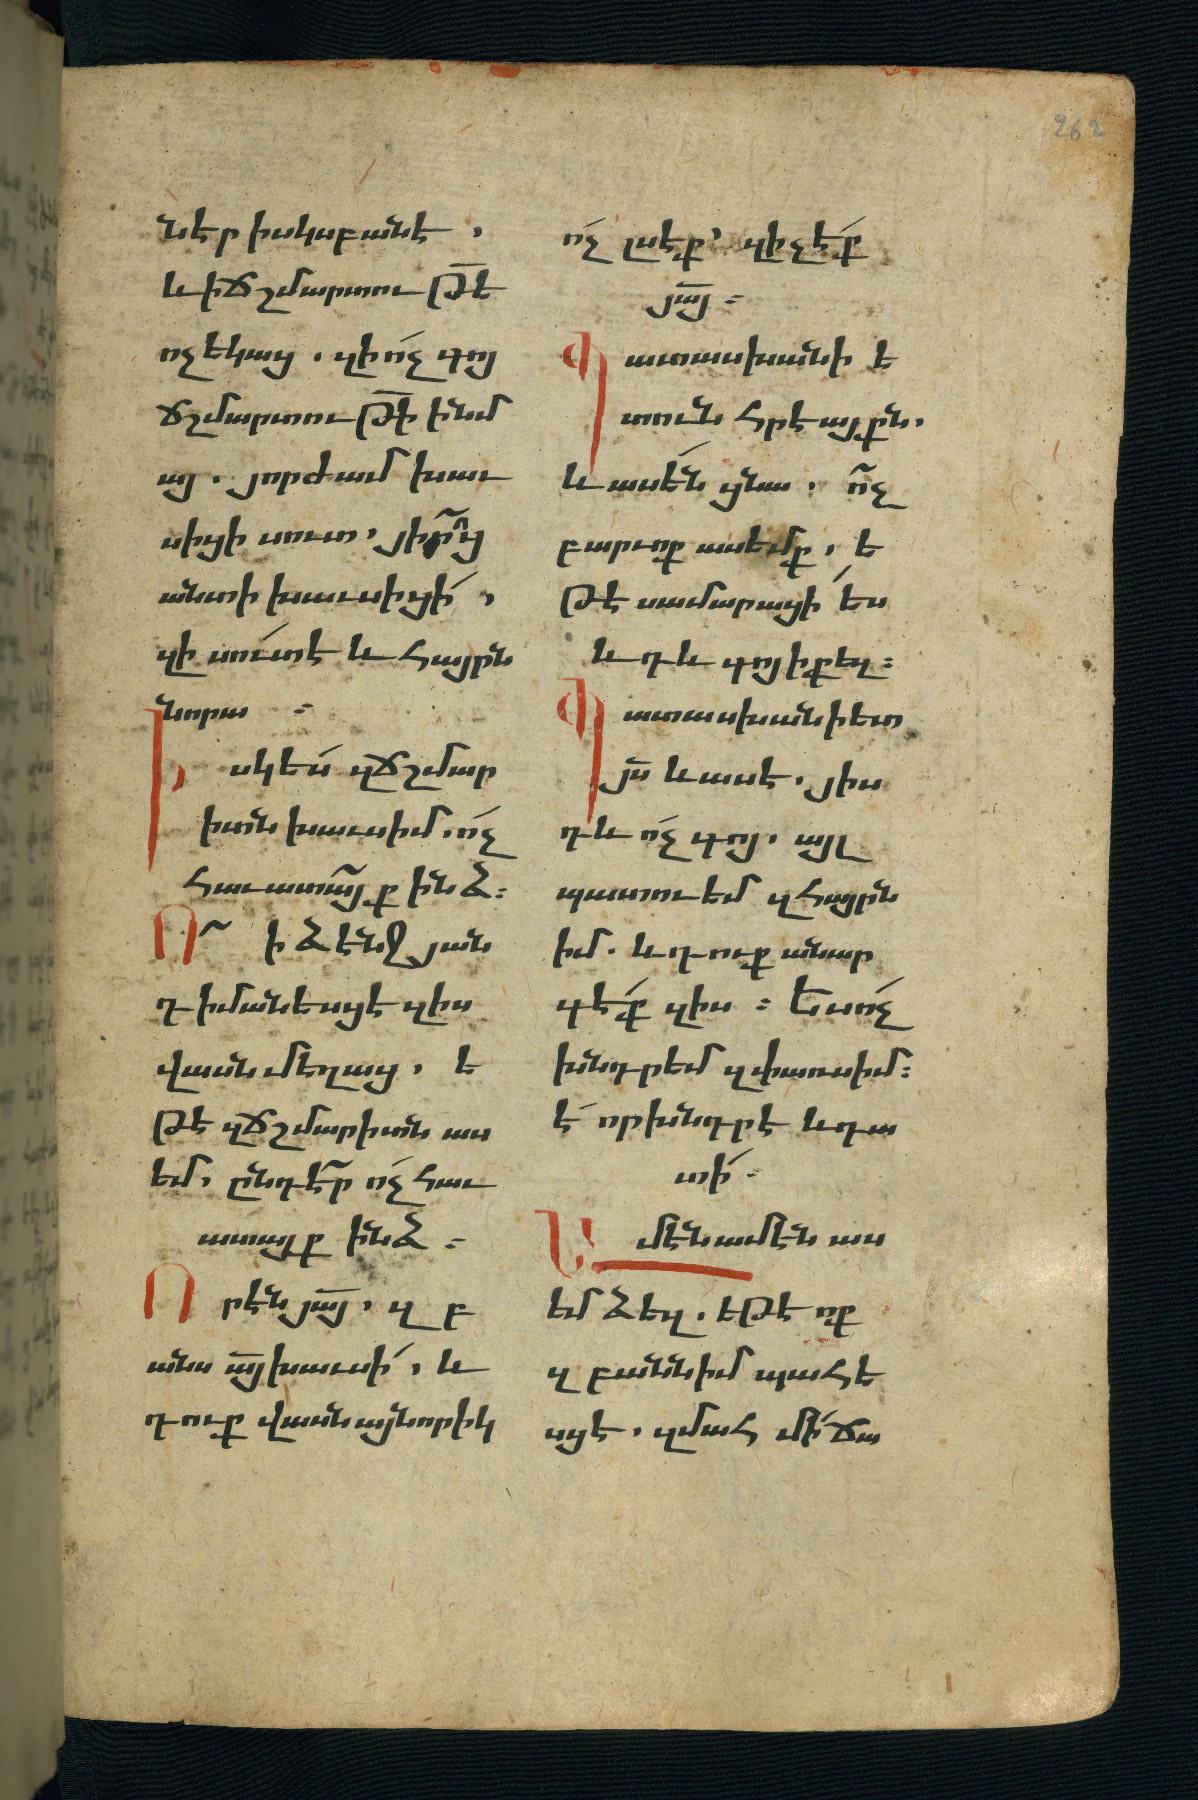 262
ներ իսկսբանէ ,
և իճշմարտու թ̅է
ոչ եկաց . զի ո՛չ գոյ
ճշմարտու թ̅ի ինմ
այ . յորժամ խաւ
սիցի սուտ , յիւր̃ոց
անտի խաւսիցի՛ ,
զի սո՛ւտ է և հայրն
նորա ։
Իսկ ես՛ զճշմար
իտն խաւսիմ . ո՛չ
հաւատա̃յք ինձ ։
Ո՞ ի ձէնջ յան
դիմանեսցէ զիս
վասն մեղաց . ե
թէ զճշմարիտն աս
եմ , ընդէ՞ր ո՛չ հաւ
ատայք ինձ ։
Որ էն յա̅յ , զ բ
անս ա̅յ խաւսի՛ , և
դուք վասն այնորիկ
ո՛չ լսէք՝ զի չէ՛ք
յա̅յ ։
Պատասխանի ե
տուն հրէայքն .
և ասե՛ն ցնա , ո՞չ
բարւոք ասեմք , ե
թէ սամարացի՛ ես
և դև գոյ ի քեզ ։
Պատասխանի ետ
յ̅ս և ասէ . յիս
դև ո՛չ գոյ . այլ
պատուեմ զհայրն
իմ . և դուք անար
գէ՛ք զիս ։ Ես ո՛չ
խնդրեմ զփառս իմ ։
է՛ որ խնդրէ և դա
տի՛ .
Ամէն ամէն աս
եմ ձեզ . եթէ ոք
զ բանն իմ պահե
սցէ . զմահ մի՛ ճա